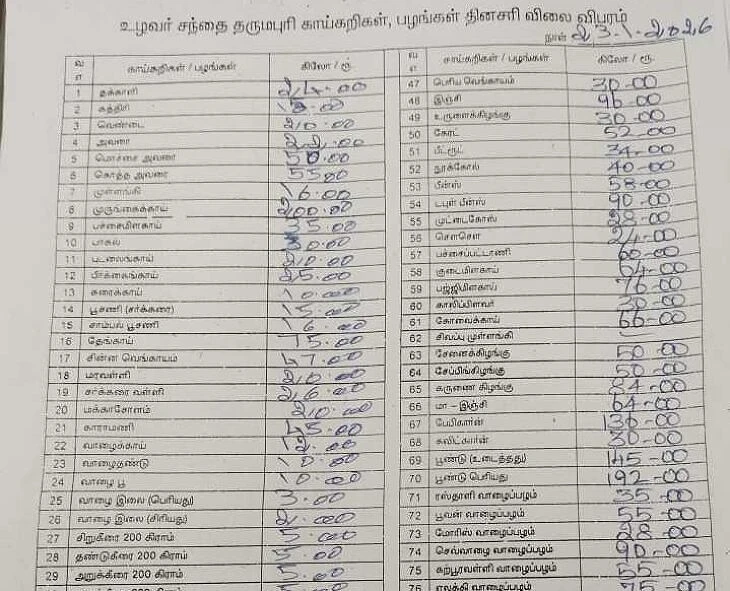 உழவர் சந்தை தருமபுரி காய்கறிகள், பழங்கள் தினசரி விலை விபரம்
நாள் 23-1-2026
வ எ காய்கறிகள் / பழங்கள் கிலோ / ரூ.
1 தக்காளி 24.00
2 கத்திரி
3 வெண்டை 20.00
4 அவரை 22.00
5 மொச்சை அவரை 50.00
6 கொத்த அவரை 55.00
7 முள்ளங்கி 16.00
8 முருங்கைக்காய் 200.00
9 பச்சைமிளகாய் 35.00
10 பாகல் 30.00
11 புடலைங்காய் 20.00
12 பீர்க்கங்காய் 25.00
13 சுரைக்காய் 10.00
14 பூசணி (சர்க்கரை) 15.00
15 சாம்பல் பூசணி 16.00
16 தேங்காய் 75.00
17 சின்ன வெங்காயம் 47.00
18 மரவள்ளி 20.00
19 சர்க்கரை வள்ளி 26.00
20 மக்காசோளம் 20.00
21 காராமணி 45.00
22 வாழைக்காய் 12.00
23 வாழைதண்டு 10.00
24 வாழை பூ 10.00
25 வாழை இலை (பெரியது) 3.00
26 வாழை இலை (சிரியது) 2.00
27 சிறுகீரை 200 கிராம் 5.00
28 தண்டுகீரை 200 கிராம் 5.00
29 அறுக்கீரை 200 கிராம் 5.00
வ எ சாய்கறிகள் / பழங்கள் கிலோ / ரூ.
47 பெரிய வெங்காயம் 30-00
48 இஞ்சி 96-00
49 உருளைக்கிழங்கு 30-00
50 கேரட் 52-00
51 பீட்ரூட் 34-00
52 நூக்கோல் 40-00
53 பீன்ஸ் 58-00
54 டபுள் பீன்ஸ் 90-00
55 முட்டைகோஸ் 28-00
56 சௌசௌ 24-00
57 பச்சைப்பட்டாணி 60-00
58 குடைமிளகாய் 64-00
59 பஜ்ஜிமிளகாய் 76-00
60 காலிப்பிளவர் 30-00
61 கோவைக்காய் 66-00
62 சிவப்பு முள்ளங்கி
63 சேனைக்கிழங்கு 50-00
64 சேப்பிங்கிழங்கு 50-00
65 கருணை கிழங்கு 84-00
66 மா – இஞ்சி 64-00
67 பேபிகார்ன் 130-00
68 சுவிட்கார்ன் 30-00
69 பூண்டு (உடைத்தது) 145-00
70 பூண்டு பெரியது 192-00
71 ரஸ்தாளி வாழைப்பழம் 35-00
72 பூவன் வாழைப்பழம் 55-00
73 மோரிஸ் வாழைப்பழம் 28-00
74 செவ்வாழை வாழைப்பழம் 90-00
75 கற்பூரவள்ளி வாழைப்பழம் 55-00
76 ஏலக்கி வாழைப்பழம் 75-00